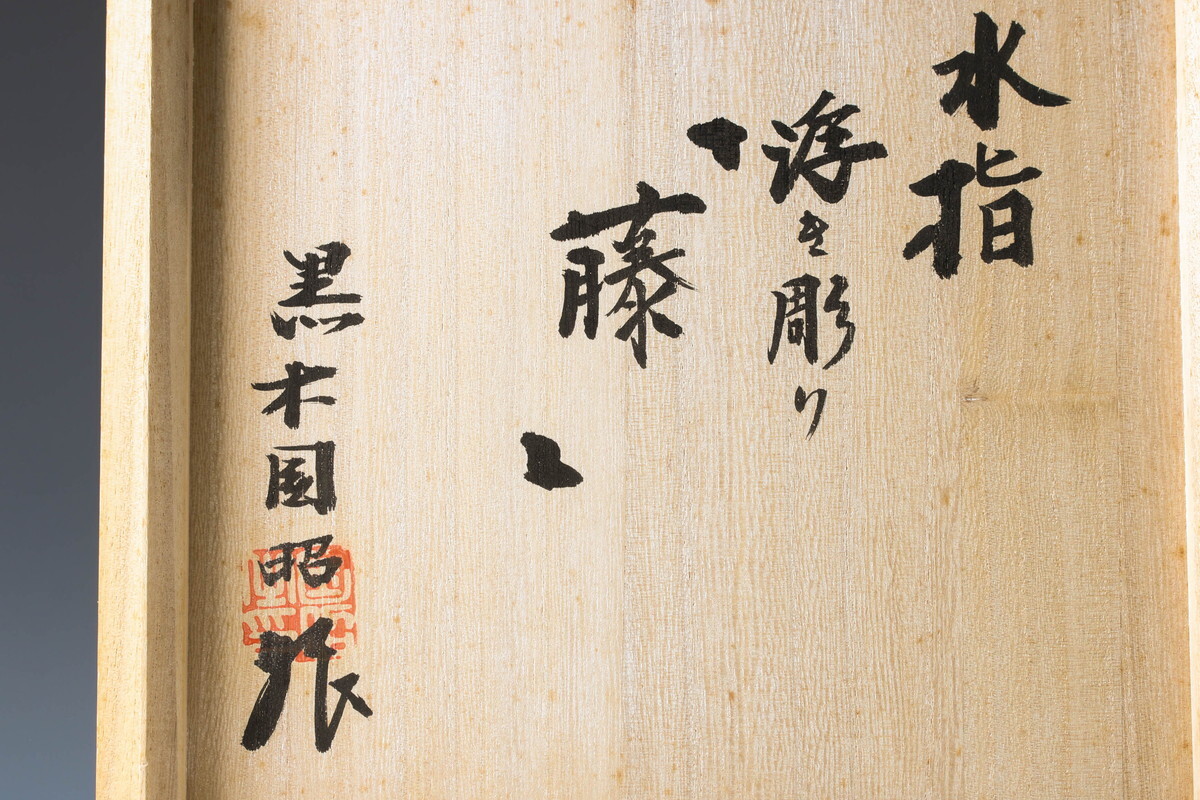 水指
浮き彫り
「藤」
黒木国昭作